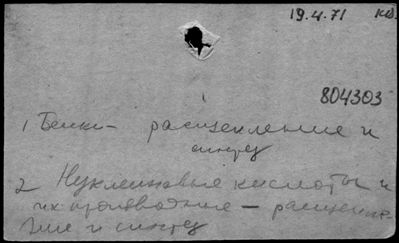 19.4.71 кв.
804303
1 Белки – расщепление и
синтез
2 Нуклеиновые кислоты и
их производные – расщепле-
ние и синтез